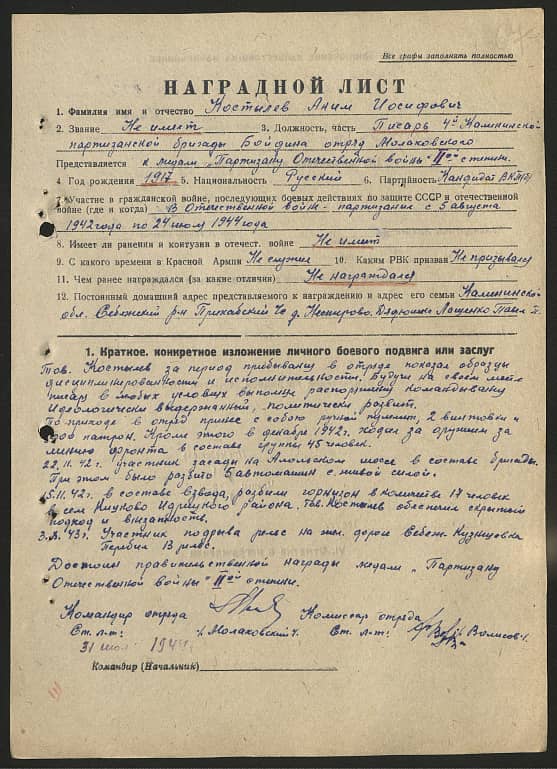 Все графы заполнять полностью
НАГРАДНОЙ ЛИСТ
1. Фамилия имя и отчество Костылев Аким Иосифович
2. Звание Не имеет 3. Должность, часть Писарь 4й Калининской
партизанской бригады Бойдина отряд Молаковского
Представляется к медали "Партизану Отечественной войны" IIой степени.
4 Год рождения 1917 5. Национальность Русский 6. Партийность Кандидат ВКП(б)
7. Участие в гражданской войне, последующих боевых действиях по защите СССР и отечественной
войне (где и когда) В Отечественной войне - партизании с 5 августа
1942 года по 24 июля 1944 года
8. Имеет ли ранения и контузии в отечест. войне Не имеет
9. С какого времени в Красной Армии Не служил 10. Каким РВК призван Не призывался
11. Чем ранее награжден (за какие отличия) Не награждался
12. Постоянный домашний адрес представляемого к награждению и адрес его семьи Калининской
обл. Себежский р-н д. Нестерово. Дядюшке Лященко
1. Краткое, конкретное изложение личного боевого подвига или заслуг
Тов. Костылев за период прибывания в отряде показал образцы
дисциплинированности и исполнительности. Будучи на своем месте
писаря в любых условиях выполнял распоряжения командования
Идеологически выдержанный, политически развит.
По приходе в отряд принес с собою ручной пулемет, 2 винтовки и
патрон. Кроме этого в декабре 1942г. ходил за оружием за
линию фронта в составе группы 45 человек.
22.11.42г. участник засады на шоссе в составе бригады.
При этом было разбито 6 автомашин с живой силой.
15.11.42г. в составе взвода, разбили горнизон в количестве 17 человек
в селе Идрицкого района. Тов. Костылев обеспечил скрытный
подход и внезапность.
43г. Участник подрыва рельс на жел. дороге Себеж-Кузнецовка
рельс.
Достоин правительственной награды медали "Партизану
Отечественной войны" IIой степени.
Командир отряда Комиссар отряда
Ст. л-т: /Молаковский/. Ст. л-т: /Волисов/.
31 июля 1944
Командир (Начальник)